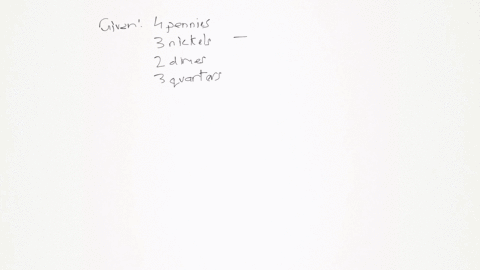 Given: 4 pennies
3 nickels –
2 dimes
3 quarters